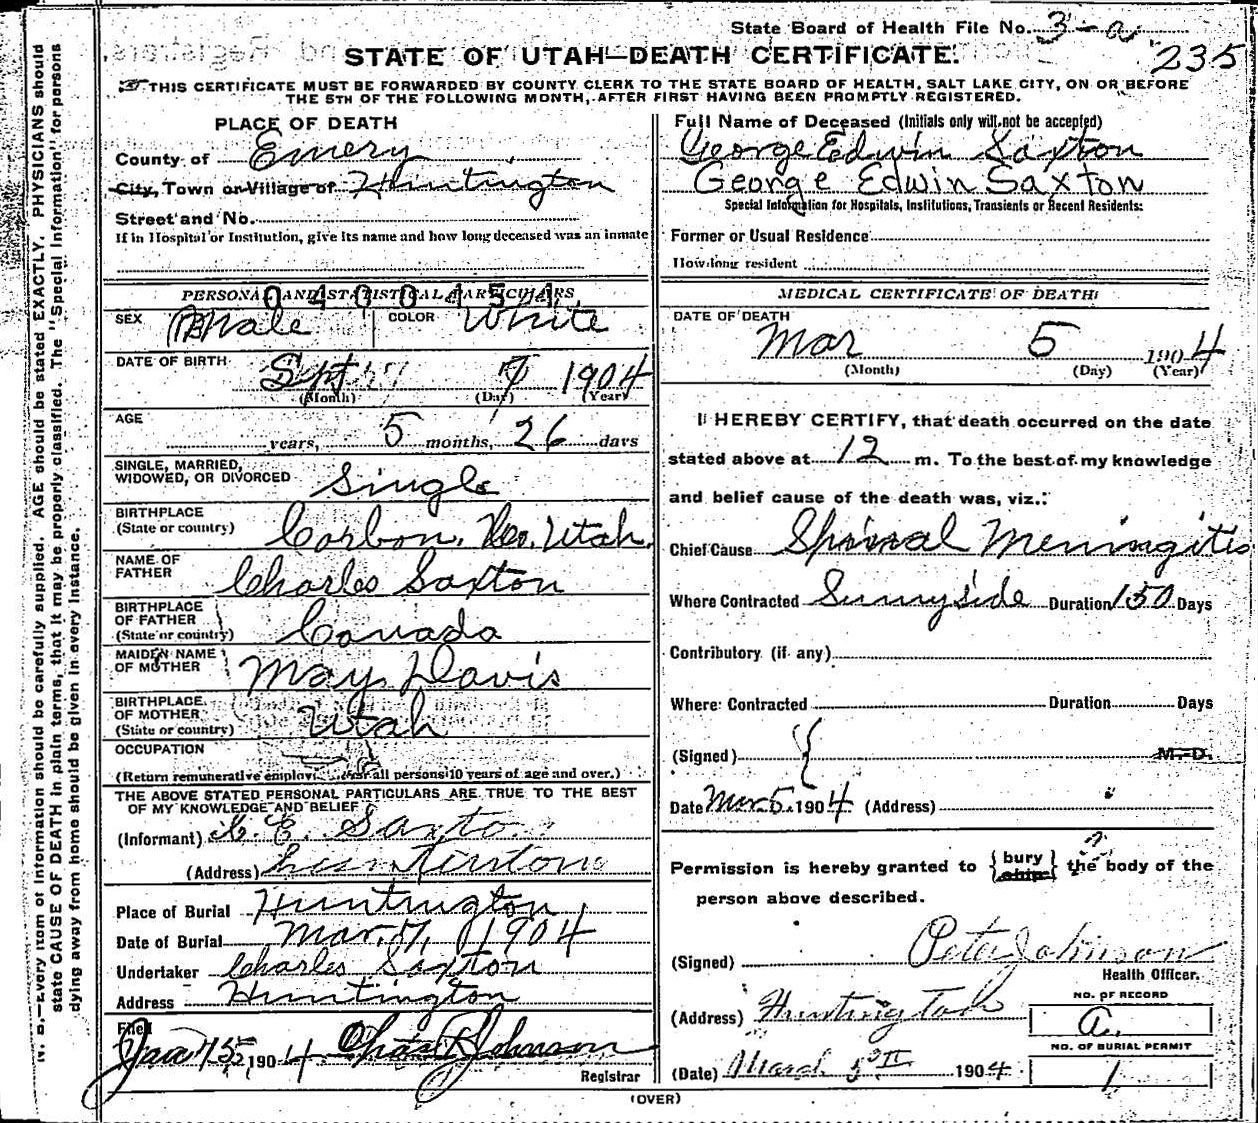 State Board of Health File No. 3-a
235
STATE OF UTAH—DEATH CERTIFICATE.
THIS CERTIFICATE MUST BE FORWARDED BY COUNTY CLERK TO THE STATE BOARD OF HEALTH, SALT LAKE CITY, ON OR BEFORE
THE 5TH OF THE FOLLOWING MONTH, AFTER FIRST HAVING BEEN PROMPTLY REGISTERED.
N. B.—Every item of information should be carefully supplied. AGE should be stated EXACTLY. PHYSICIANS should
state CAUSE OF DEATH in plain terms, that it may be properly classified. The "Special Information" for persons
dying away from home should be given in every instance.
PLACE OF DEATH
County of Emery
City, Town or Village of Huntington
Street and No.
If in Hospital or Institution, give its name and how long deceased was an inmate
PERSONAL AND STATISTICAL PARTICULARS
0400451
SEX Male COLOR White
DATE OF BIRTH Sept 7 1904
(Month) (Day) (Year)
AGE years, 5 months, 26 days
SINGLE, MARRIED,
WIDOWED, OR DIVORCED Single
BIRTHPLACE
(State or country) Carbon. Co. Utah.
NAME OF
FATHER Charles Saxton
BIRTHPLACE
OF FATHER
(State or country) Canada
MAIDEN NAME
OF MOTHER May Davis
BIRTHPLACE
OF MOTHER
(State or country) Utah
OCCUPATION
(Return remunerative employ for all persons 10 years of age and over.)
THE ABOVE STATED PERSONAL PARTICULARS ARE TRUE TO THE BEST
OF MY KNOWLEDGE AND BELIEF
(Informant) C. E. Saxton
(Address) Huntington
Place of Burial Huntington
Date of Burial Mar. 1904
Undertaker Charles Saxton
Address Huntington
Filed
1904 Chas Johnson
Registrar
Full Name of Deceased (Initials only will not be accepted)
George Edwin Saxton
George Edwin Saxton
Special Information for Hospitals, Institutions, Transients or Recent Residents:
Former or Usual Residence
How long resident
MEDICAL CERTIFICATE OF DEATH
DATE OF DEATH
Mar 5 1904
(Month) (Day) (Year)
I HEREBY CERTIFY, that death occurred on the date
stated above at 12 m. To the best of my knowledge
and belief cause of the death was, viz.:
Chief Cause Spinal Meningitis
Where Contracted Sunnyside Duration 150 Days
Contributory (if any)
Where Contracted Duration Days
(Signed) M. D.
Date Mar 5 1904 (Address)
Permission is hereby granted to {bury
ship} the body of the
person above described.
(Signed) Peter Johnson
Health Officer.
(Address) Huntington
NO. OF RECORD
a.
NO. OF BURIAL PERMIT
1
(Date) March 5 1904
(OVER)